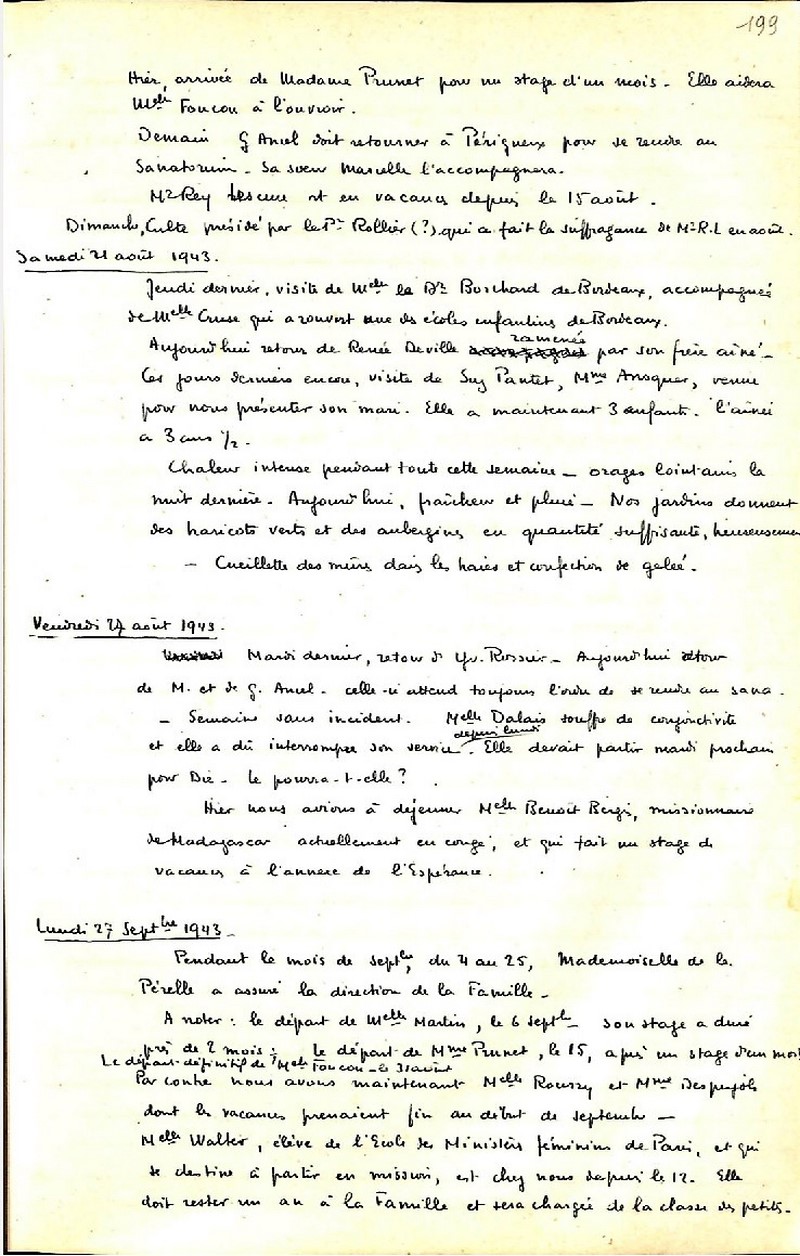 199
Hier, arrivée de Madame Prunet pour un stage d'un mois - Elle aidera
Melle Foucou à l'ouvroir.
Demain G Ancel doit retourner à Périgueux pour se rendre au
Sanatorium - Sa sœur Marcelle l'accompagnera.
Mr Rey est en vacances depuis le 15 août.
Dimanche, Culte présidé par le Pr Rollier (?) qui a fait la suffragance de Mr R.L en août.
Samedi 21 août 1943.
Jeudi dernier, visite de Melle le Dr Borchard de Bordeaux, accompagnée
de Melle Cruse qui a rouvert une des écoles enfantines de Bordeaux.
ramenée
Aujourd'hui retour de Renée Deville par son frère aîné -
Ces jours derniers encore, visite de Suz Pantet, Mme Ansquer, venue
pour nous présenter son mari. Elle a maintenant 3 enfants. l'aînée
a 3 ans 1/2.
Chaleur intense pendant toute cette semaine - orages lointains la
nuit dernière - Aujourd'hui, fraîcheur et pluie - Nos jardins donnent
des haricots verts et des aubergines en quantité suffisante, heureusement
- Cueillette des mûres dans les haies et confection de gelée.
Vendredi 27 août 1943.
Mardi dernier, retour d' Yv. Rossier - Aujourd'hui retour
de M. et de G. Ancel - celle-ci attend toujours l'ordre de se rendre au sana.
- Semaine sans incident. Melle Dalais souffre de conjonctivite
depuis lundi
et elle a dû interrompre son service. Elle devait partir mardi prochain
pour Die - le pourra-t-elle ?
Hier nous avions à déjeuner Melle Benoit Bergis, missionnaire
de Madagascar actuellement en congé, et qui fait un stage de
vacances à l'annexe de l'Espérance.
Lundi 27 Septbre 1943 -
Pendant le mois de Septbre, du 4 au 25, Mademoiselle de la
Pérelle a assuré la direction de la Famille -
A noter : le départ de Melle Martin, le 6 Septbre son stage a duré
près de 2 mois : le départ de Mme Prunet, le 15, après un stage d'un mois
Le départ définitif de Melle Foucou - le 31 août
Par contre nous avons maintenant Melle Rouzzy et Mme Despujols
dont les vacances prenaient fin au début de septembre -
Melle Walter, élève de l'Ecole des Ministères féminins de Paris, et qui
se destine à partir en mission, est chez nous depuis le 12. Elle
doit rester un an à la Famille et sera chargée de la classe des petits -